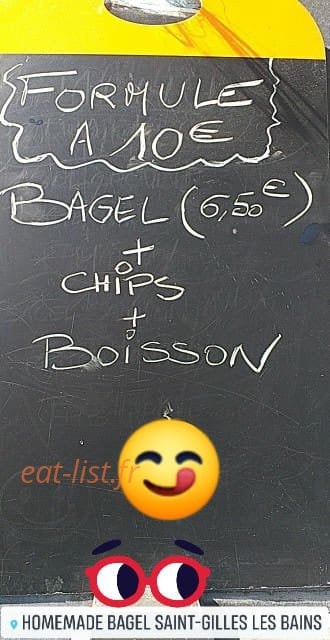 FORMULE
A 10€
BAGEL (6,50€)
+
CHIPS
+
BOISSON
eat-list.fr
HOMEMADE BAGEL SAINT-GILLES LES BAINS